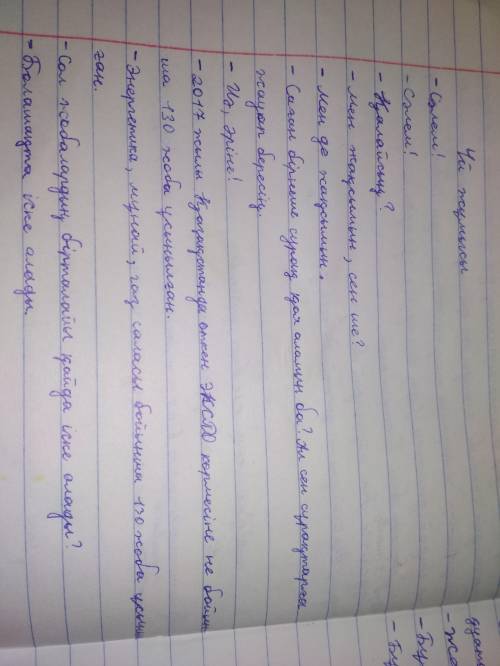 Үй жұмысы
- Сәлем!
- Сәлем!
- Қалайсың?
- Мен жақсымын, сен ше?
- Мен де жақсымын.
- Саған бірнеше сұрақ қоя аламын ба? Ал сен сұрақтарға
жауап бересің.
- Иә, әрине!
- 2017 жылы Қазақстанда өткен ЭКСПО көрмесіне не бойын
ша 130 жоба ұсынылған.
- Энергетика, мұнай, газ саласы бойынша 130 жоба ұсыныл
ған.
- Сол жобалардың бірталайы қайда іске асады?
- Болашақта іске асады.